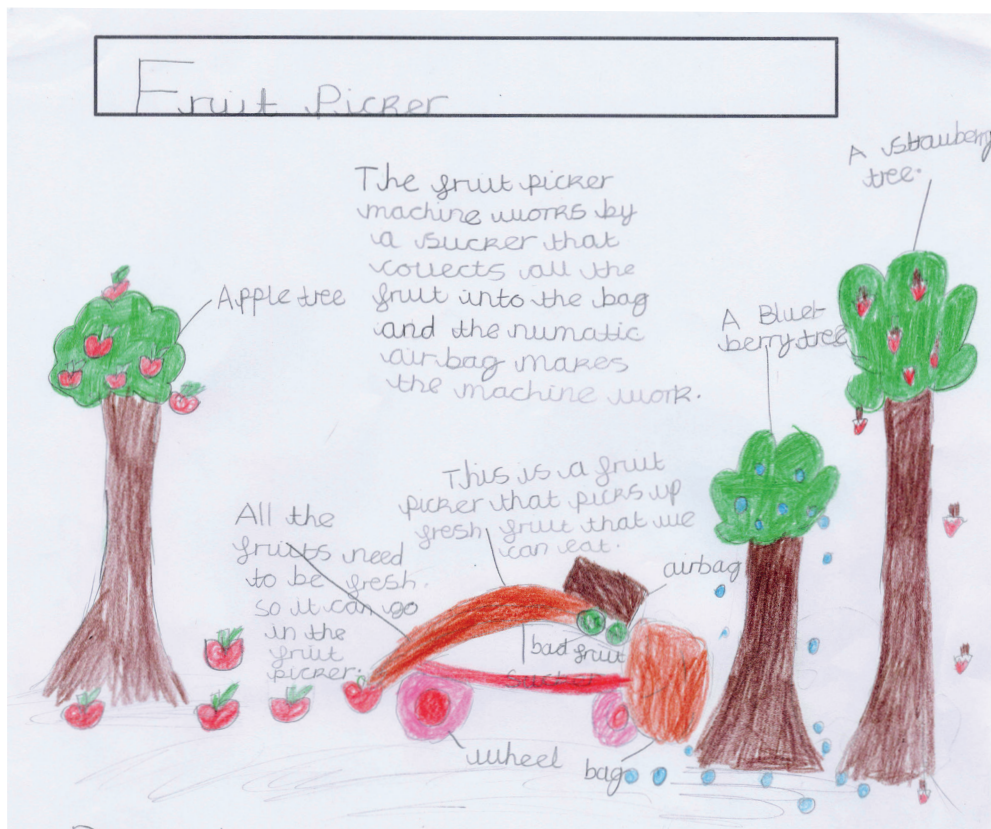 Fruit Picker
A strawberry
tree.
The fruit picker
machine works by
a sucker that
collects all the
fruit into the bag
and the numatic
air bag makes
the machine work.
Apple tree
A Blue
berry tree
This is a fruit
picker that picks up
fresh fruit that we
can eat.
All the
fruits need
to be fresh.
so it can go
in the
fruit
picker.
airbag
bad fruit
wheel
bag